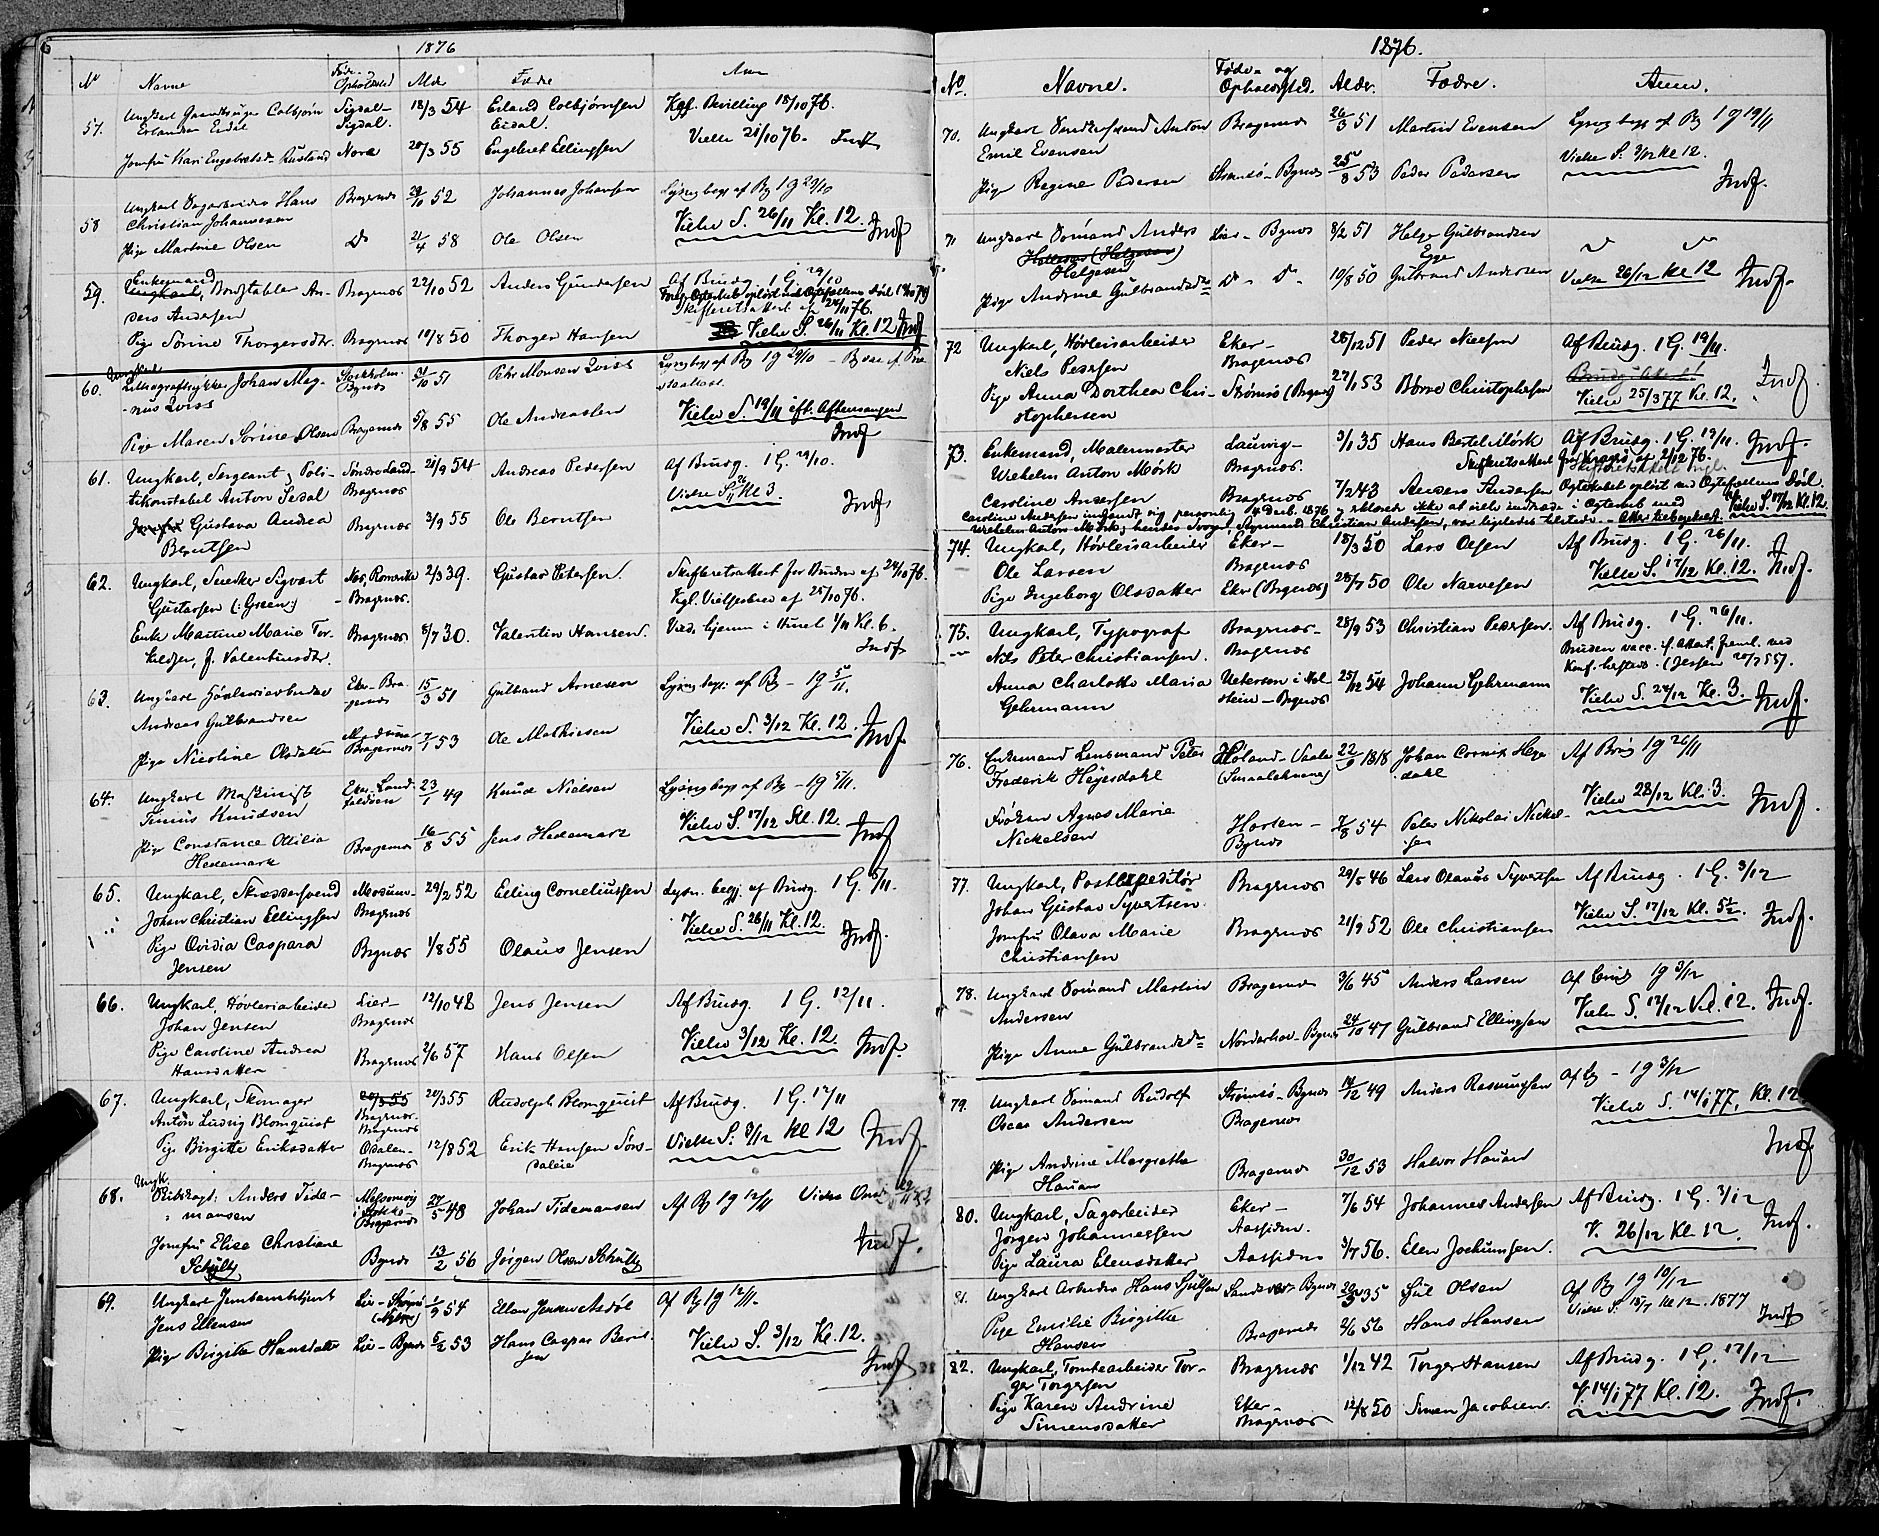 1876
No Navne Føde- og Opholdssted Alder Fædre Anm
57. Ungkarl Gaardbruger Colbjørn Sigdal- 18/3 54 Erland Colbjørnsen Kgl. Bevilling 18/10 76.
Erlandsen Eidal Sigdal. Eidal. Vielse 21/10 76. Indf
Jomfru Kari Engebretsdr. Rustand Nore 20/3 55 Engebret Ellingsen
58 Ungkarl Sagarbeider Hans Bragernæs 52 Johannes Johansen Lysning beg. af Bg 1 g 29/10
Christian Johannesen Vielse S. 26/11 Kl. 12. Indf
Pige Martine Olsen Do 21/4 58 Ole Olsen
Enkemand
59. Ungkarl, Bordstabler An- Bragernæs 22/10 52 Anders Gundersen Af Brudg. 1 G. 29/10
ders Andersen
Skifteretsattest af 24/11 76.
Pige Sørine Thorgersdtr. Bragernæs 10/8 50 Thorger Hansen Vielse S. 26/11 Kl. 12 Indf
Ungkarl
60. Lithograftrykker Johan Mag- Stockholm- 31/10 51 Petr Monsen Qvist Lysning beg. af Bg 1 g 29/10
nus Qvist Bgnæs
Vielse S. 19/11 eft. Aftensangen
Pige Maren Sørine Olsen Bragernæs 5/8 55 Ole Andreassen Indf
61. Ungkarl, Sergeant, Poli- Søndre Land- 21/9 54 Andreas Pedersen Af Brudg. 1 G. 29/10.
tikonstabel Anton Sedal Bragernæs Vielse S. 26/11 Kl. 3. Indf
Jomfru Gustava Andrea Bragernæs 3/9 55 Ole Berntsen
Berntsen
62. Ungkarl, Snedker Sigvart Nes, Romerike 2/3 39. Gustav Petersen. Skifteretsattest for Bruden af 24/10 76.
Gustavsen (: Green:) - Bragernæs. Kgl. Vielsesbrev af 25/10 76.
Enke Martine Marie Tor- Bragernæs 8/7 30. Valentin Hansen. Vied hjemme i Huset 1/11 Kl. 6.
kildsen, f. Valentinsdtr. Indf
63. Ungkarl Høvleriarbeider Eker- Bra- 15/3 51 Gulbrand Arnesen Lysning beg. af Bg - 1 g 5/11.
Andreas Gulbrandsen gernæs
Vielse S. 3/12 Kl. 12. Indf
Pige Nicoline Olsdatter Modum- Bragernæs 7/1 53 Ole Mathisen
64. Ungkarl Maskinist 23/1 49 Knud Nielsen Lysning beg. af Bg - 1 g 5/11.
Tinius Knudsen Vielse S. 17/12 Kl. 12. Indf
Pige Constance Otilia Bragernæs 16/8 55 Jens Hedemark
Hedemark
65. Ungkarl, Skræddersvend Modum- 29/2 52 Elling Corneliussen Lysn. begj. af Brudg. 1 G. 5/11.
Johan Christian Ellingsen Bragernæs Vielse S. 26/11 Kl. 12. Indf.
Pige Ovidia Caspara Bragernæs 1/8 55 Olaus Jensen
Jensen
66. Ungkarl, Høvleriarbeider Lier- 12/10 48 Jens Jensen Af Brudg. 1 G. 12/11.
Johan Jensen Bragernæs Vielse 3/12 Kl. 12. Indf.
Pige Caroline Andrea Bragernæs 2/6 57 Hans Olsen
Hansdatter
67. Ungkarl, Skomager 20/3 55 20/3 55 Rudolph Blomquist Af Brudg. 1 G. 12/11
Anton Ludvig Blomquist Bragernæs- Bragernæs Vielse S. 3/12 Kl 12 Indf.
Pige Birgitte Eriksdatter Odalen- Bragernæs 12/8 52 Erik Hansen Sors-
dalen
Ungk.
68. Anders Tide- 27/5 48 Johan Tidemansen Af Bg 1 g 12/11
mansen Bragernæs
Indf.
Jomfru Elise Christiane Bgnæs 13/2 56 Jørgen Olsen Schultz
Schultz
69. Ungkarl Jens Ellensen Lier- 1/9 54 Ellen Jensen Asdøl Af Bg 1 g 12/11.
Vielse S. 3/12 Kl. 12.
Pige Birgitte Hansdatter Lier- Bgnæs 5/2 53 Hans Caspar Bernt-
sen Indf
1876.
No. Navne. Føde- og Opholdssted. Alder. Fædre. Anm.
70. Ungkarl Anton Bragernæs 26/3 51 Martin Evensen Lysning beg. af Bg 1 g 19/11
Emil Evensen Vielse S. 3/12 Kl 12.
Pige Regine Pedersen Strømsø- Bgnæs 25/8 53 Peder Pedersen Indf.
71 Ungkarl Sømand Anders Lier- Bgnæs 8/2 51 Helge Gulbrandsen
Helgesen Ege
Pige Andrine Gulbrandsdr D- D- 19/8 50 Gulbrand Andersen Vielse 26/12 Kl 12 Indf.
72 Ungkarl, Høvleriarbeider Eker- 28/12 51 Peder Nielsen Af Brudg. 1 G. 19/11.
Niels Pedersen Bragernæs
Pige Anna Dorthea Chri- Strømsø (Bragernæs) 27/1 53 Børre Christophersen Vielse 25/3 77 Kl. 12. Indf
stophersen
73. Enkemand, Malermester Laurvig- 3/1 35 Hans Bertel Mørk Af Brudg. 1 G. 19/11. Indf.
Wilhelm Anton Mørk Bragernæs. Skifteretsattest fra Kragerø af 2/12 76.
Caroline Andersen Bragernæs 7/2 43 Anders Andersen Egteskabet opløst ved Egtefællens Død.
Caroline Andersen indfandt sig personlig 4 Decb. 1876 og erklærede ikke at ville indtræde i Egteskab med Vielse S. 17/12 Kl. 12.
Wilhelm Anton Mørk; hendes Svoger, Styrmand Christian Andersen, var ligeledes tilstede.
74. Ungkarl, Høvleriarbeider Eker- 18/3 50 Lars Olsen Af Brudg. 1 G. 26/11.
Ole Larsen Bragernæs Vielse S. 17/12 Kl. 12. Indf.
Pige Ingeborg Olsdatter Eker (Bragernæs) 28/7 50 Ole Narvesen
75. Ungkarl, Typograf Bragernæs- 25/9 53 Christian Pedersen. Af Brudg. 1 G. 26/11.
Nils Peter Christiansen. Bragernæs Bruden vacc. if. Attest, freml. ved
Anna Charlotte Maria Uetersen i Hol- 25/12 54 Johann Gehrmann
Gehrmann stein- Bragernæs Vielse S. 24/12 Kl. 3. Indf.
76. Enkemand Lensmand Peter Høland- Vaaler 22/9 1818 Johan Cornix Heye- Af Brudg 1 g 26/11
Frederik Heyerdahl (Smaalehnene) dahl
Vielse 28/12 Kl. 3. Indf
Frøken Agnes Marie Horten- 7/8 54 Peter Nikolai Nickel-
Nickelsen Bgnæs sen
77. Ungkarl, Postexpeditør Bragernæs 29/5 46 Lars Olavus Syvertsen Af Brudg. 1 G. 3/12
Johan Gustav Syvertsen. Vielse S. 17/12 Kl. 5½. Indf.
Jomfru Olava Marie Bragernæs 21/9 52 Ole Christiansen
Christiansen
78. Ungkarl Sømand Martin Bragernæs 3/6 45 Anders Larsen Af Brud 1 g 3/12
Andersen Vielse S. 17/12 Kl. 12. Indf.
Pige Anne Gulbrandsdr Norderhov- Bgnæs 24/10 47 Gulbrand Ellingsen
79. Ungkarl Sømand Rudolf Strømsø- Bgnæs 14/12 49 Anders Rasmussen Af Bg - 1 g 3/12
Oscar Andersen Bragernæs Vielse S. 14/1 77, Kl. 12
Pige Andrine Margrethe Bragernæs 30/12 53 Halvor Hauan Indf
Hauan
80. Ungkarl, Sagarbeider Eker- 7/6 54 Johannes Andersen Af Brudg. 1 G. 3/12
Jørgen Johannessen Aassiden. V. 26/12 Kl. 12. Indf.
Pige Laura Elensdatter Aassiden 3/7 56. Elen Jochumsen.
81. Ungkarl Arbeider Hans Gjulsen Sandsvær- Bgnæs 35 Gjul Olsen Af Bg 1 g 10/12
Vielse S. 15/7 Kl 12. 1877 Indf
Pige Emilie Birgitte Bragernæs 2/6 56 Hans Hansen
Hansen
82. Ungkarl, Tomtearbeider Tor- Bragernæs 1/12 42 Torger Hansen Af Brudg. 1 G. 17/12
ger Torgersen V. 14/1 77 Kl. 12. Indf.
Pige Karen Andrine Eker- 12/8 50 Simen Jacobsen.
Simensdatter Bragernæs